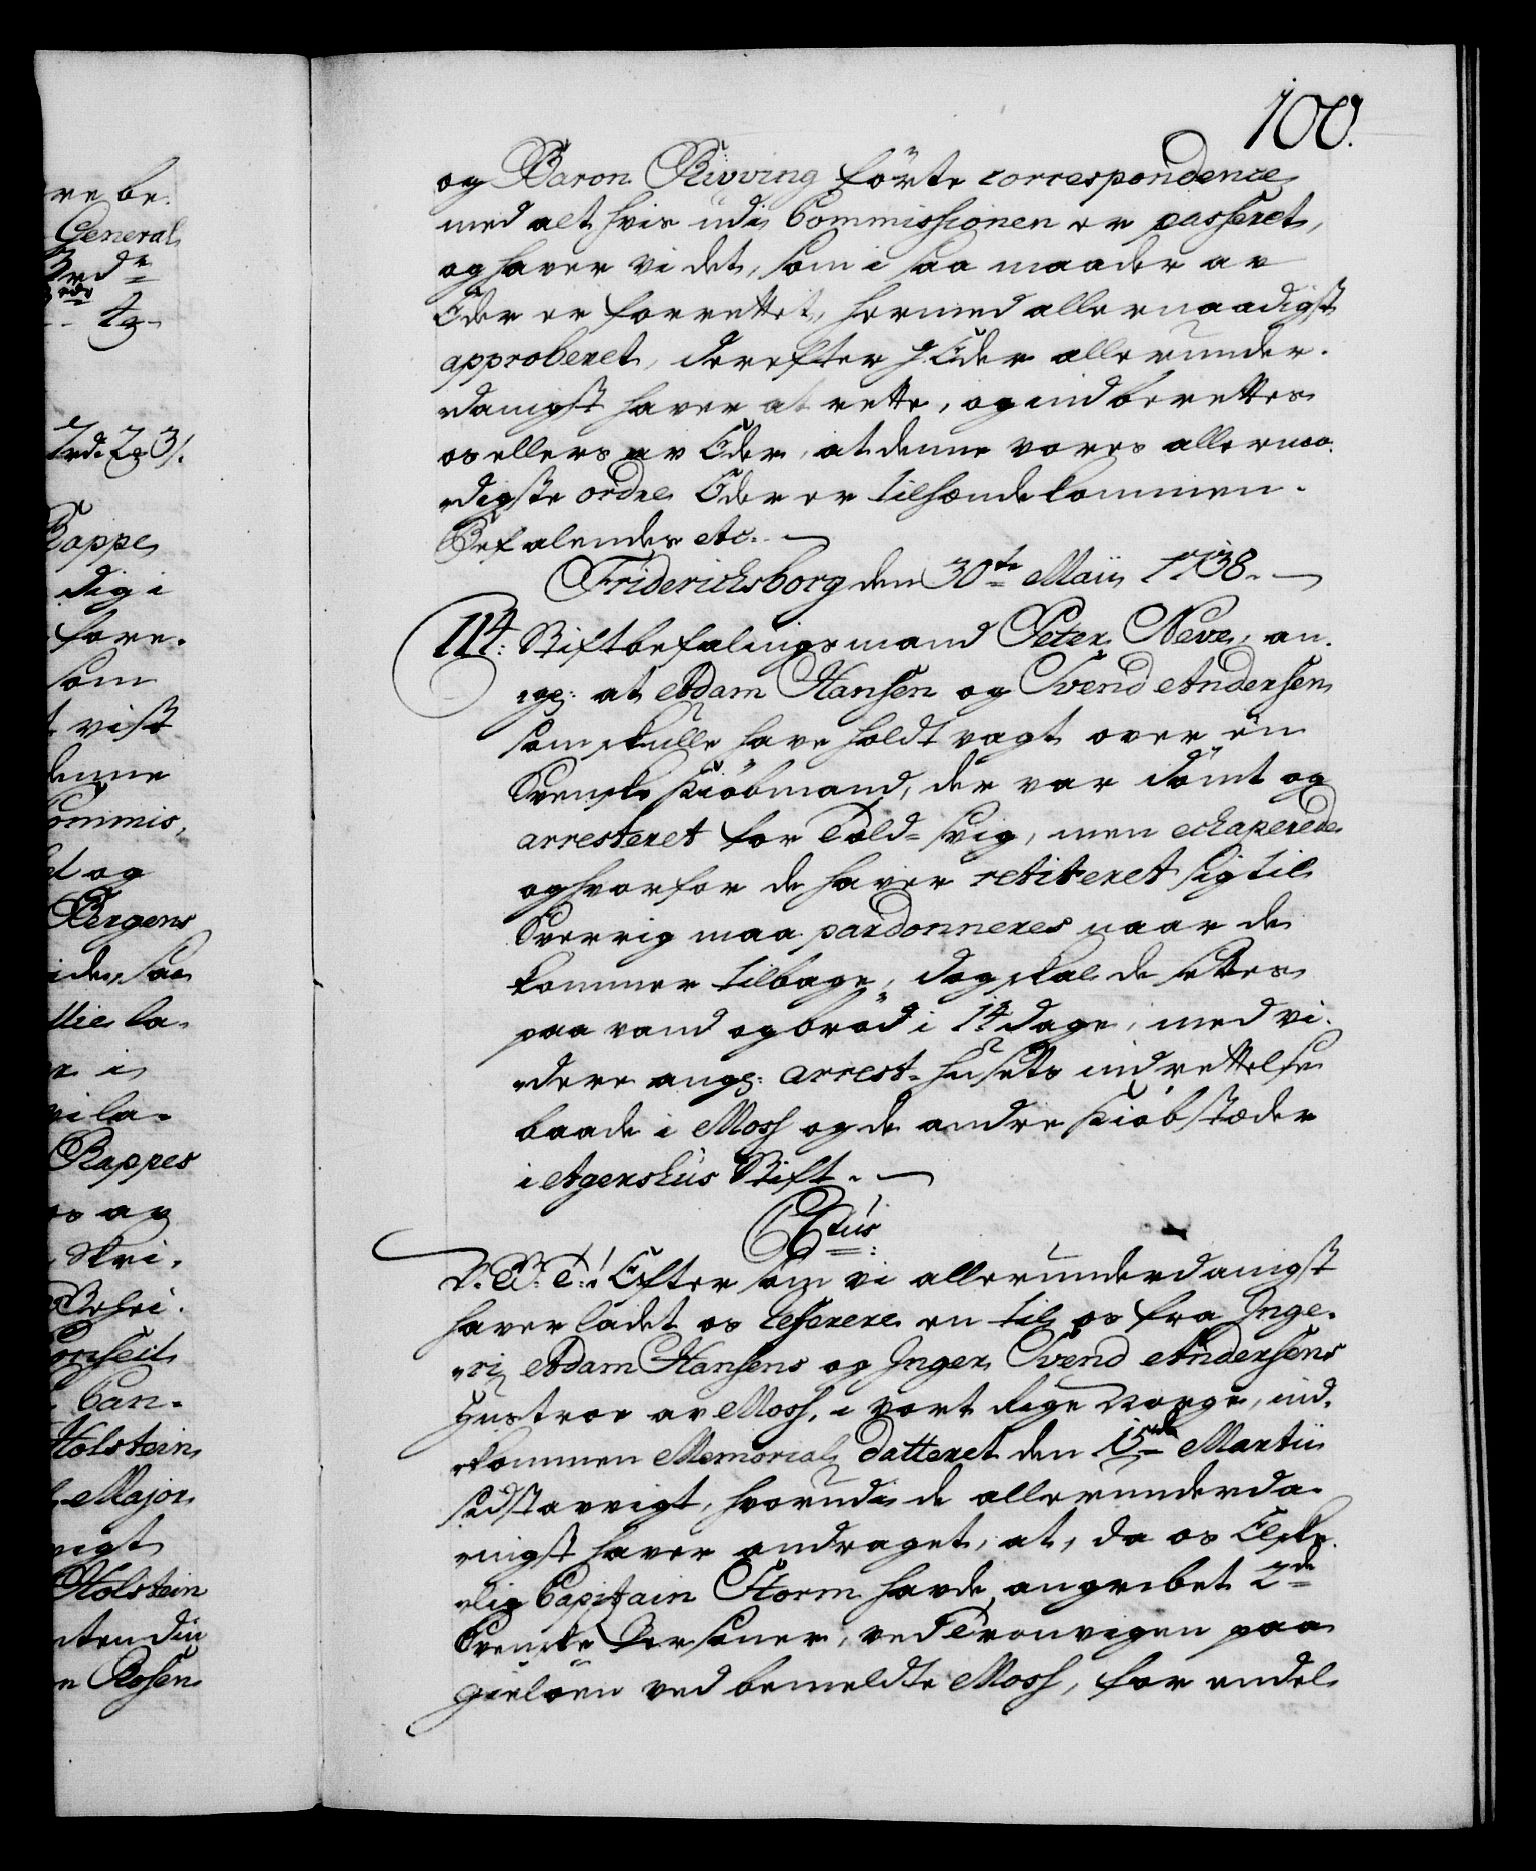 100.
og Baron Rivving förte correspondence
med alt hvis udi Commissionen er passeret,
og haver vi det, som i saa maader av
Eder er forrettet, hermed allernaadigst
approberet, derefter I Eder allerunder-
danigst haver at rette, og indberettes
os ellers av Eder, at denne vores allernaa-
digste ordre Eder er tilhænde kommen.
Befalendes etc.
Friderichsborg den 30te Maii 1738.
114: Stiftbefalingsmand Peter Neve, an-
ge: at Adam Hansen og Svend Andersen
som skulle have holdt vagt over en
Svensk Kiöbmand, der var dömt og
arresteret for Told-svig, men echaperede
og hvorfor de haver retireret sig til
Sverrig maa pardonneres naar de
kommer tilbage, dog skal de settes
paa vand og bröd i 14 dage, med vi-
dere ange: arrest-husets indrettelse
baade i Moss og de andre Kiöbstæder
i Agershuus Stift.
C 6tus
V. G. T.! Efter som vi allerunderdanigst
haver ladet os referere en til os fra Inge-
ri Adam Hansens og Inger Svend Andersens
Hustroe av Moss, i vort Rige Norge, ind-
kommen Memorial datteret den 15de Martii
sidstavvigt, hvorudi de allerunderda-
nigst haver andraget, at, da os Elske-
lig Capitain Storm havde angrebet 2de
Svenske Personer, ved Tronvigen paa
Gielöen ved bemeldte Moss, for endel
re be-
General
Rappe
dig i
fore-
som
vist
denne
Commis-
og
Bergens
ide, saa
la-
i
vi la-
Rappes
av
Skri-
Can-
Holstein
Major
vigt
Holstein
Rosen